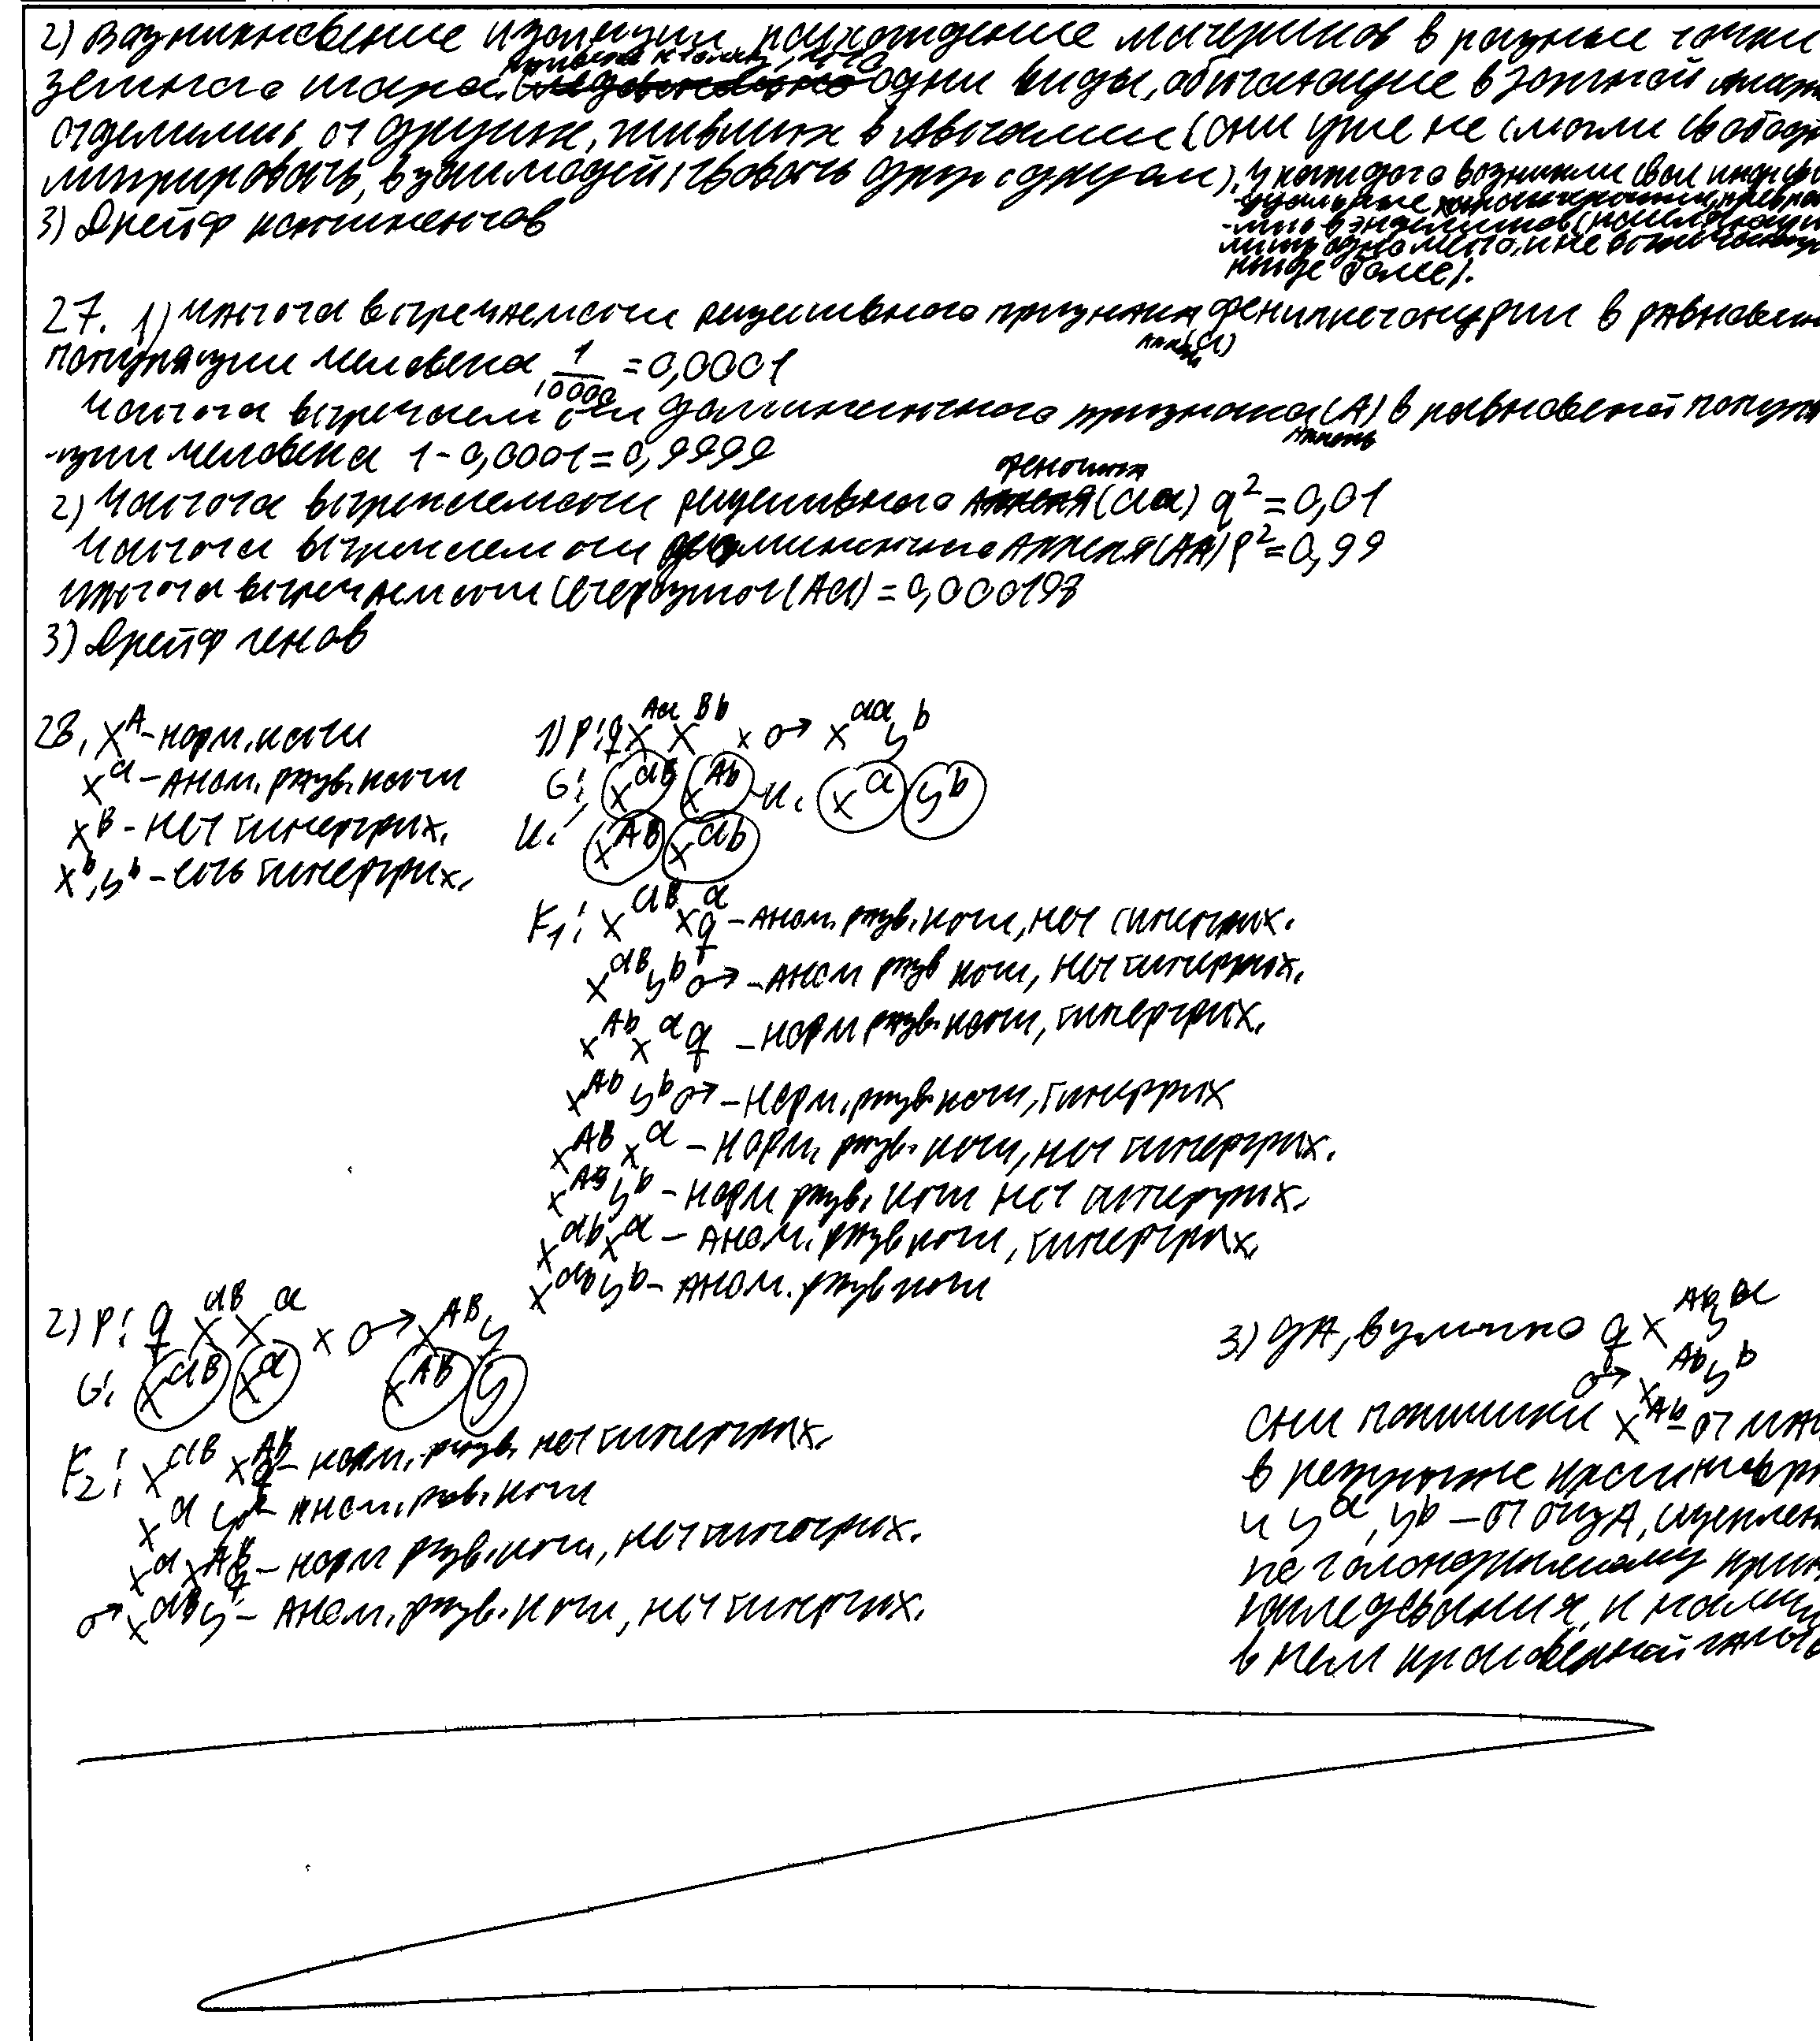 2) Возникновение изоляции, расхождение материков в разные точки
привела к тому, что
земного шара. одни виды, обитающие в Южной
отделились от других, живших в Австралии (они уже не смогли свобод
мигрировать, взаимодействовать друг с другом), у каждого возникли свои индиви
-дуальные
-лись в эндемиков
лишь одно место, и не встречающ
нигде более).
3) Дрейф континентов
27. 1) Частота встречаемости рецессивного признака фенилкетонурии в равновесн
аллель (a)
популяции человека 1/10000 = 0,0001
частота встречаемости доминантного признака (A) в равновесной популя
аллель
-ции человека 1-0,0001=0,9999
фенотипа
2) Частота встречаемости рецессивного (aa) q²=0,01
Частота встречаемости доминантного аллеля (AA) p²=0,99
частота встречаемости гетерозигот (Aa) = 0,000198
3) Дрейф генов
28. X^A - норм. ногти
X^a - аном. разв. ногти
X^B - нет гипертрих.
X^b, y^b - есть гипертрих.
1) P: ♀ X^Aa X^Bb x ♂ X^aa y^b
G: X^aB X^Ab н. X^a y^b
н: X^AB X^ab
F1: X^aB X^a ♀ - аном. разв. ногт, нет гипертрих.
X^aB y^b ♂ - аном разв ногт, нет гипертрих.
X^Ab X^a ♀ - норм разв. ногти, гипертрих.
X^Ab y^b ♂ - норм. разв. ногт, гипертрих
X^AB X^a - норм. разв. ногт, нет гипертрих.
X^AB y^b - норм разв. ногт нет гипертрих.
X^ab X^a - аном. разв ногт, гипертрих.
X^ab y^b - аном. разв ногт
2) P: ♀ X^aB X^a x ♂ X^AB y
G: X^aB X^a X^AB y
F2: X^aB X^AB ♀ - норм. разв. нет гипертрих.
X^a y ♂ - аном. разв. ногт
X^a X^AB ♀ - норм разв. ногт, нет гипертрих.
♂ X^aB y - аном. разв. ногт, нет гипертрих.
3) да, возможно ♀ X^Ab
♂ X^Ab y^b
они получили X^Ab - от
в результате кроссинговера
и y^a, y^b - от отца, сцеплен
по голандрическому
наследования, и
в нем